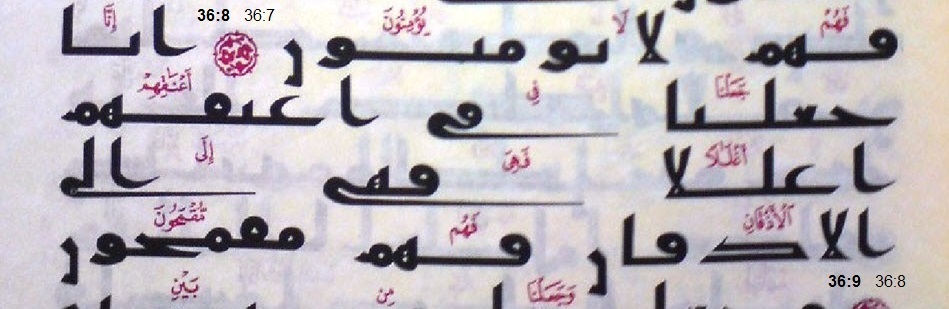 36:8 36:7
فَهُمْ لَا يُؤْمِنُونَ إِنَّا
فهم لا يومنون انا
جَعَلْنَا فِي أَعْنَٰقِهِمْ
جعلنا في اعنقهم
أَغْلَٰلًا فَهِيَ إِلَى
اغللا فهي الى
ٱلْأَذْقَانِ فَهُم مُّقْمَحُونَ
الاذقان فهم مقمحون
36:9 36:8
وَجَعَلْنَا مِن بَيْنِ